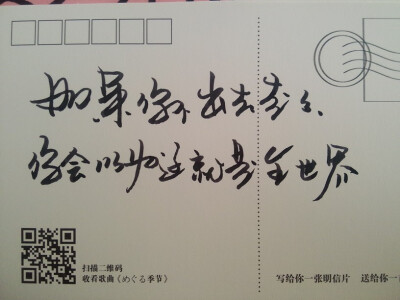 如果你不出去走走、
你会以为这就是全世界
扫描二维码
收看歌曲《めぐる季节》
写给你一张明信片 送给你一